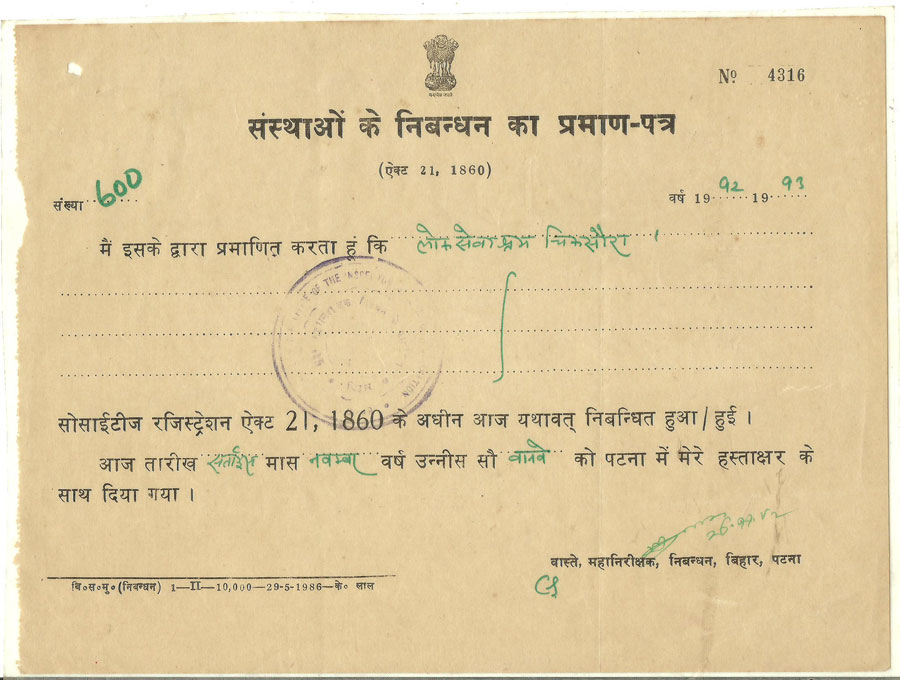 सत्यमेव जयते
Nº 4316
संस्थाओं के निबन्धन का प्रमाण-पत्र
(ऐक्ट 21, 1860)
संख्या 600
वर्ष 19 92 19 93
मैं इसके द्वारा प्रमाणित करता हूं कि लोक सेवाश्रम चिकसौरा ।
OF THE INSPE
सोसाईटीज रजिस्ट्रेशन ऐक्ट 21, 1860 के अधीन आज यथावत् निबन्धित हुआ/हुई ।
आज तारीख सताईस मास नवम्बर वर्ष उन्नीस सौ वानवे को पटना में मेरे हस्ताक्षर के
साथ दिया गया ।
वास्ते, महानिरीक्षक, निबन्धन, बिहार, पटना
बि॰स॰मु॰(निबन्धन) 1—II—10,000—29-5-1986—के॰ लाल